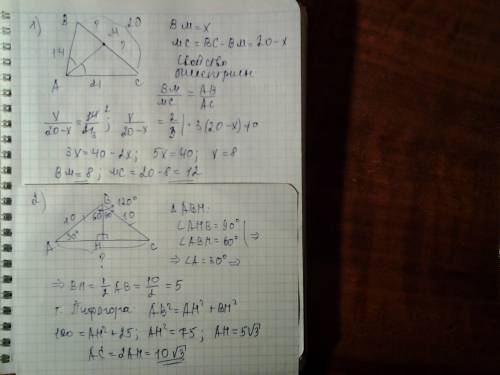 1)
B ? M ? 20
14
A 21 C
BM = x
MC = BC - BM = 20 - x
Свойство
биссектрисы
BM/MC = AB/AC
x/(20-x) = 14/21 ; x/(20-x) = 2/3 | · 3(20-x) ≠ 0
3x = 40 - 2x; 5x = 40; x = 8
BM = 8; MC = 20 - 8 = 12
2)
B 120°
10 60° 60° 10
A 30° H C
?
Δ ABH:
∠AHB = 90°
∠ABH = 60° ⇒
⇒ ∠A = 30° ⇒
⇒ BH = 1/2 AB = 10/2 = 5
т. Пифагора: AB² = AH² + BH²
100 = AH² + 25; AH² = 75; AH = 5√3
AC = 2AH = 10√3